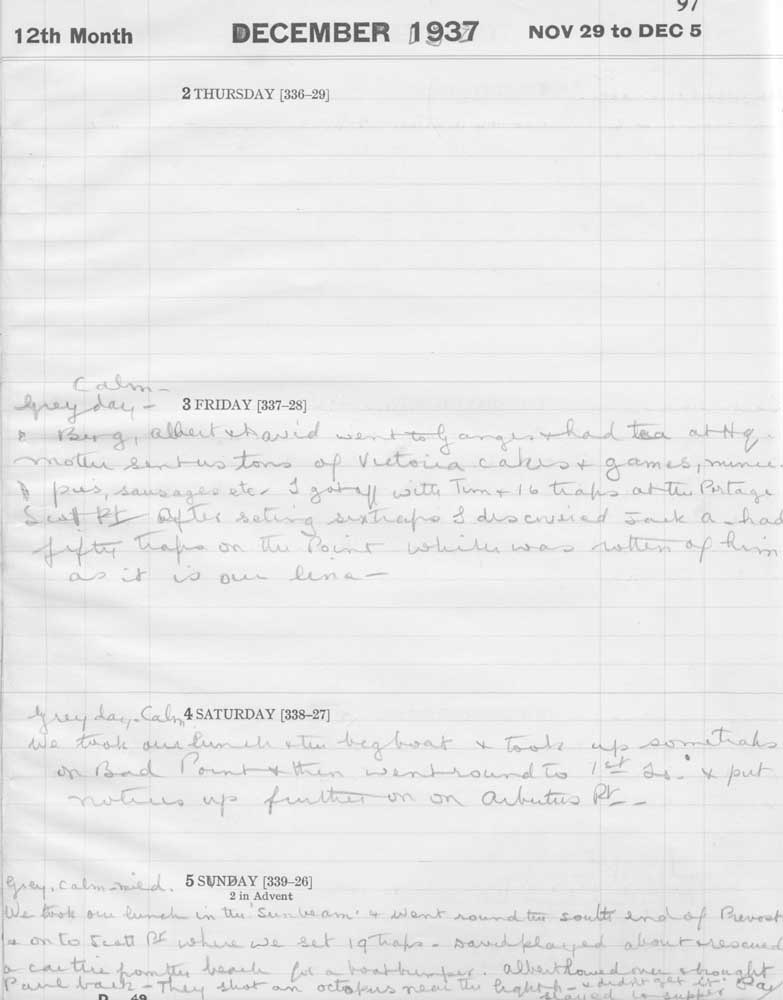 97
12th Month DECEMBER 1937 NOV 29 to DEC 5
2 THURSDAY [336–29]
Calm –
Grey day – 3 FRIDAY [337–28]
Berg, Albert & David went to Ganges & had tea at Hq.
Mother sent us tons of Victoria cakes & games, mince
pies, sausages etc – I got off with Tim & 16 traps at the Portage
Scott Pt After seting six traps I discovered Jack a had
fifty traps on the Point which was rotten of him
as it is our line –
Grey day, Calm 4 SATURDAY [338–27]
We took our lunch & the big boat & took up some traps
on Bad Point & then went round to 1st & put
notices up further on on Arbutus Pt –
Grey, calm – mild. 5 SUNDAY [339–26]
2 in Advent
We took our lunch in the 'Sunbeam' & went round the south end of Prevost
& on to Scott Pt where we set 19 traps – David played about & rescued
a from the beach for a boat bumper. Albert rowed over & brought
Paul back – They shot an octopus near the light h – & didn't get it. Ray
D 49 stayed to supper